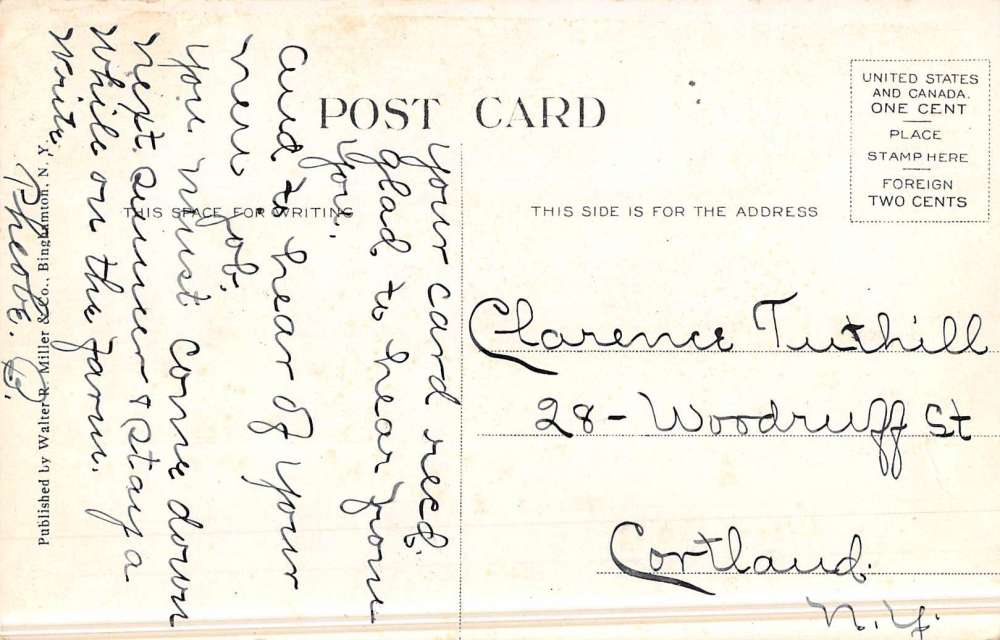 POST CARD
THIS SPACE FOR WRITING
THIS SIDE IS FOR THE ADDRESS
UNITED STATES
AND CANADA.
ONE CENT
PLACE
STAMP HERE
FOREIGN
TWO CENTS
Your card recd.
glad to hear from
you.
and to hear of your
new job.
you must come down
next sumer & stay a
while on the farm.
write.
Pheobe. B.
Clarence Tuthill
28 - Woodruff St
Cortland.
N.Y.
Published by Walter R. Miller & Co., Binghamton, N. Y.